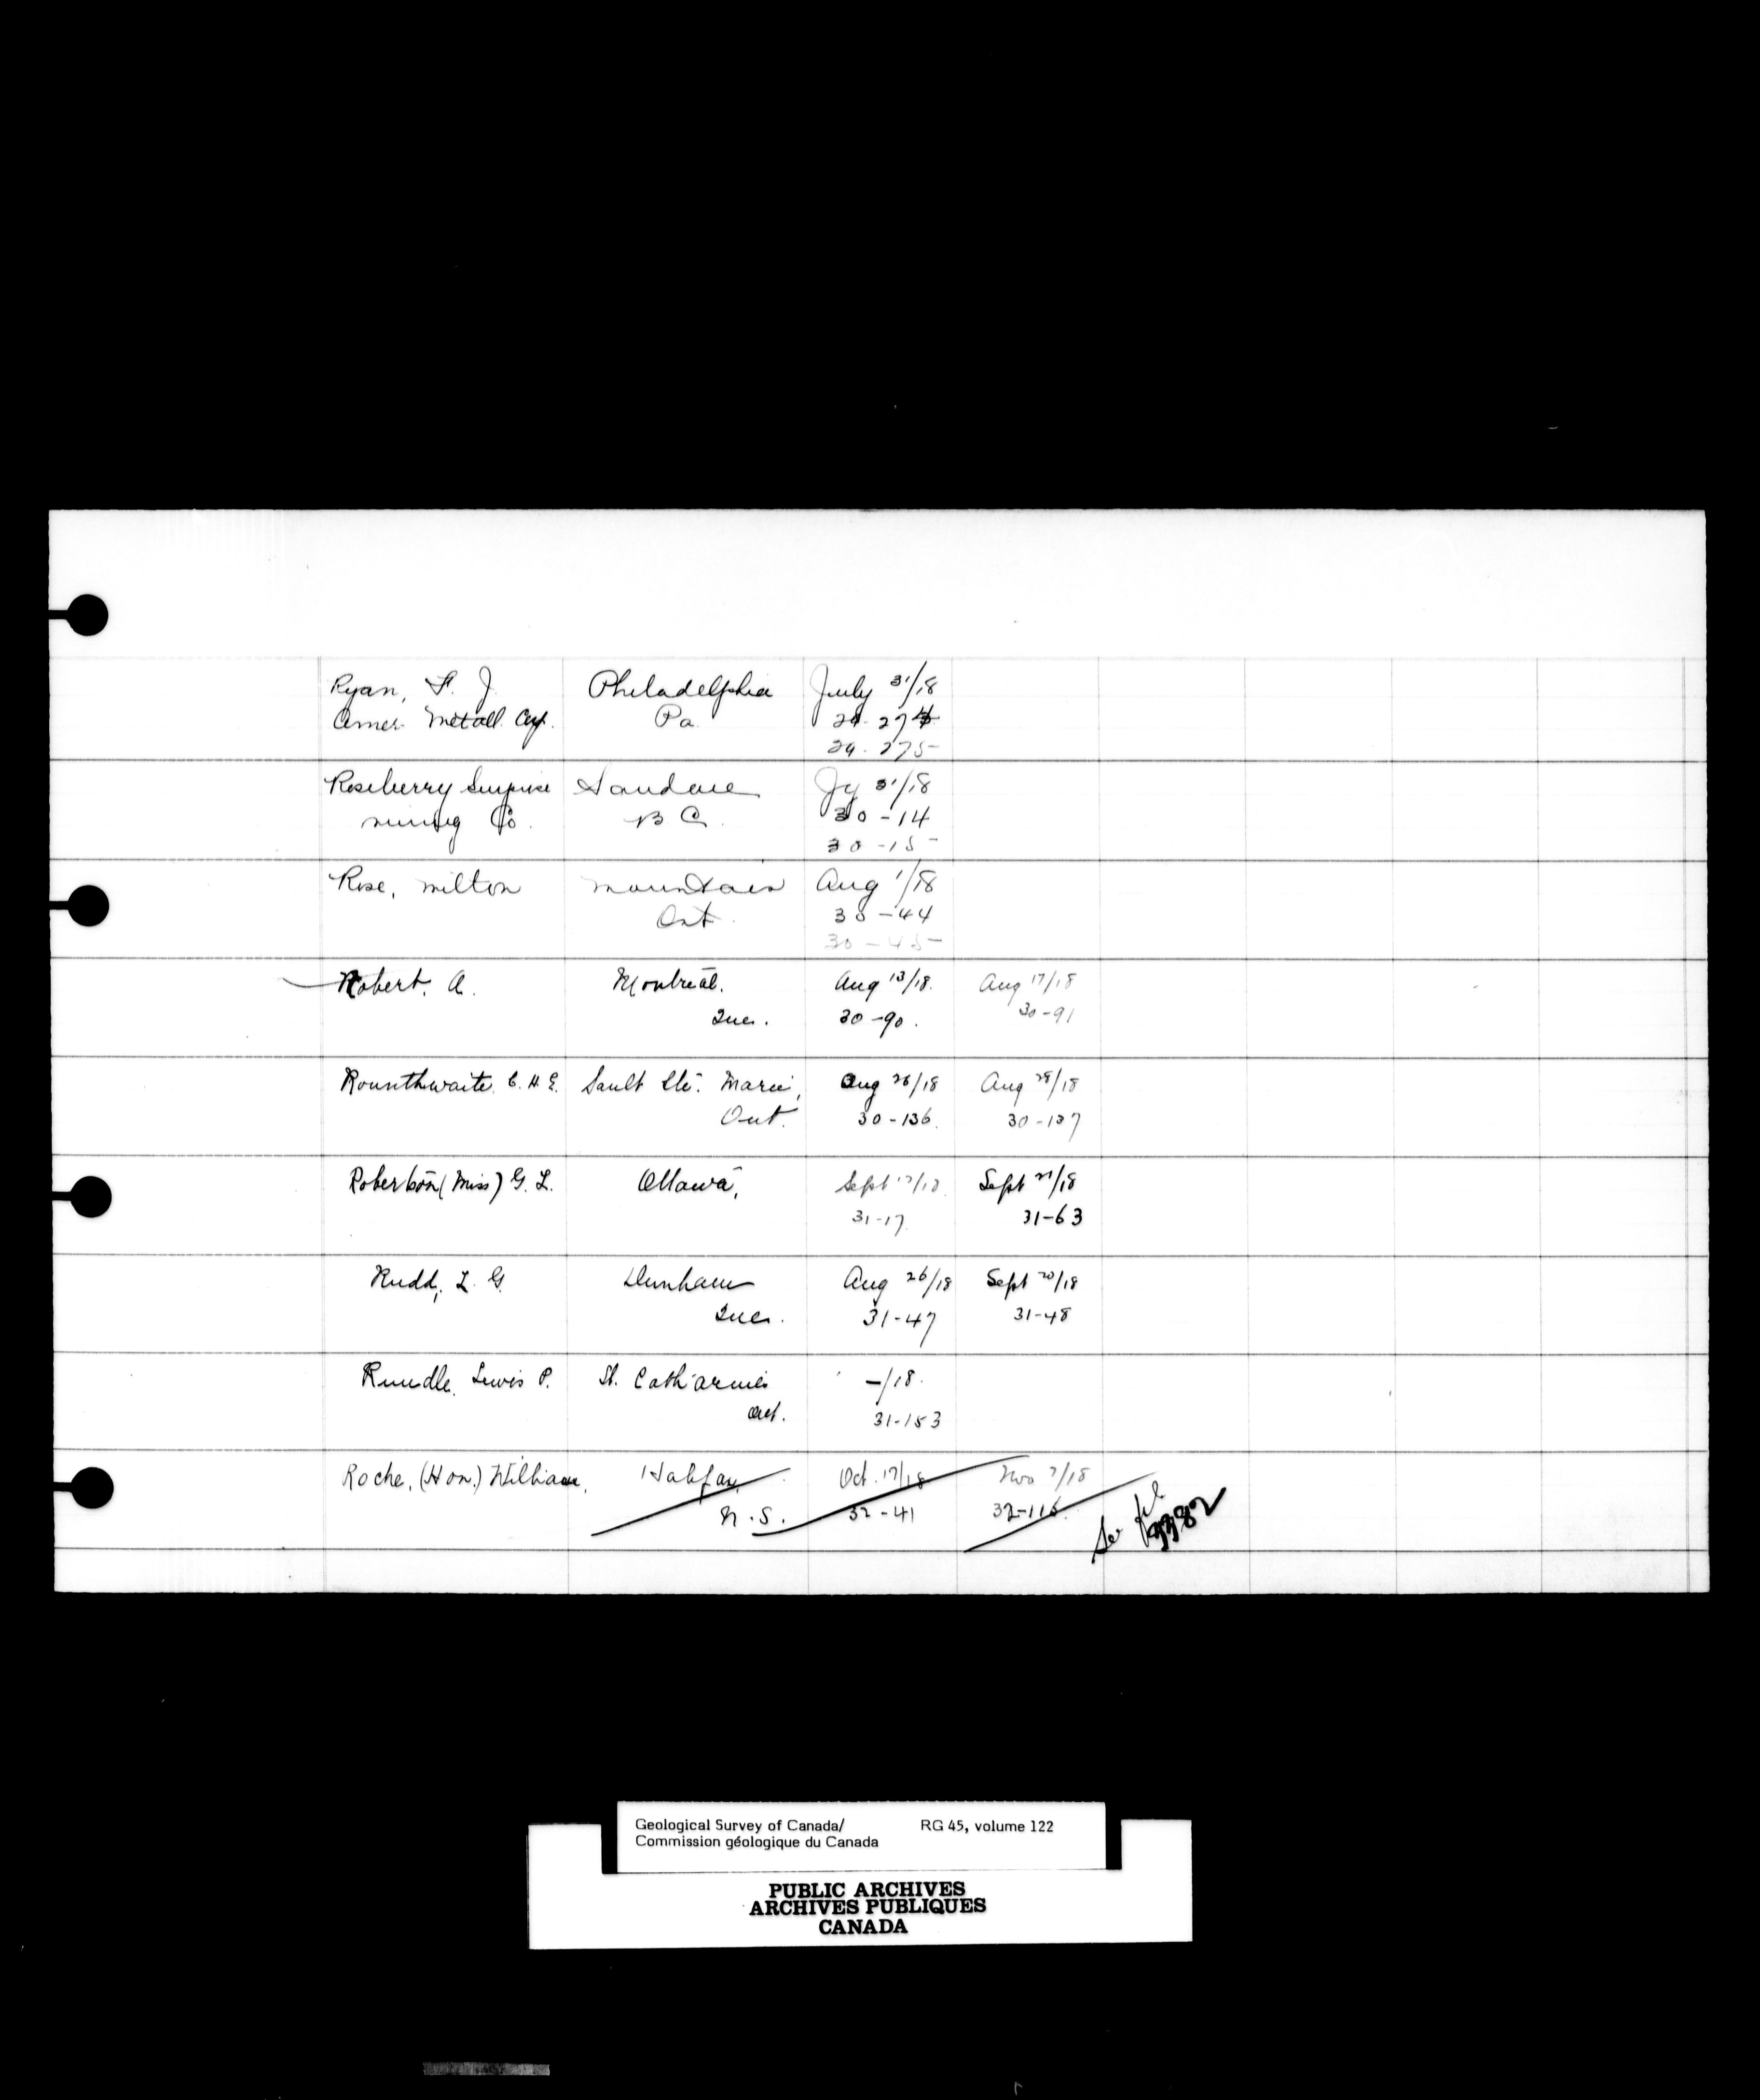 Ryan, F. J. Philadelphia July 31/18
Amer. Metall. Cop. Pa. 29-274
29-275
Roseberry Surprise Sandon Jy 31/18
Mining Co. B C. 30-14
30-15
Rose, Milton Mountain Aug 1/18
Ont. 30-44
30-45
Robert, A. Montreal. Aug 13/18. Aug 17/18
Que. 30-90. 30-91
Rounthwaite, C. H. E. Sault Ste. Marie, Aug 26/18 Aug 28/18
Ont. 30-136. 30-137
Robertson (Miss) G. L. Ottawa, Sept 17/18. Sept 21/18
31-17. 31-63
Rudd, L. G. Dunham Aug 26/18 Sept 20/18
Que. 31-47 31-48
Rundle, Lewis P. St. Catharines -/18.
Ont. 31-153
Roche, (Hon.) William, Halifax, Oct. 17/18 Nov 7/18
N.S. 32-41 32-116.
See file
Geological Survey of Canada/ RG 45, volume 122
Commission géologique du Canada
PUBLIC ARCHIVES
ARCHIVES PUBLIQUES
CANADA